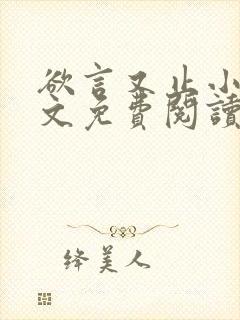 欲言又止小
文免費閱讀
绛美人